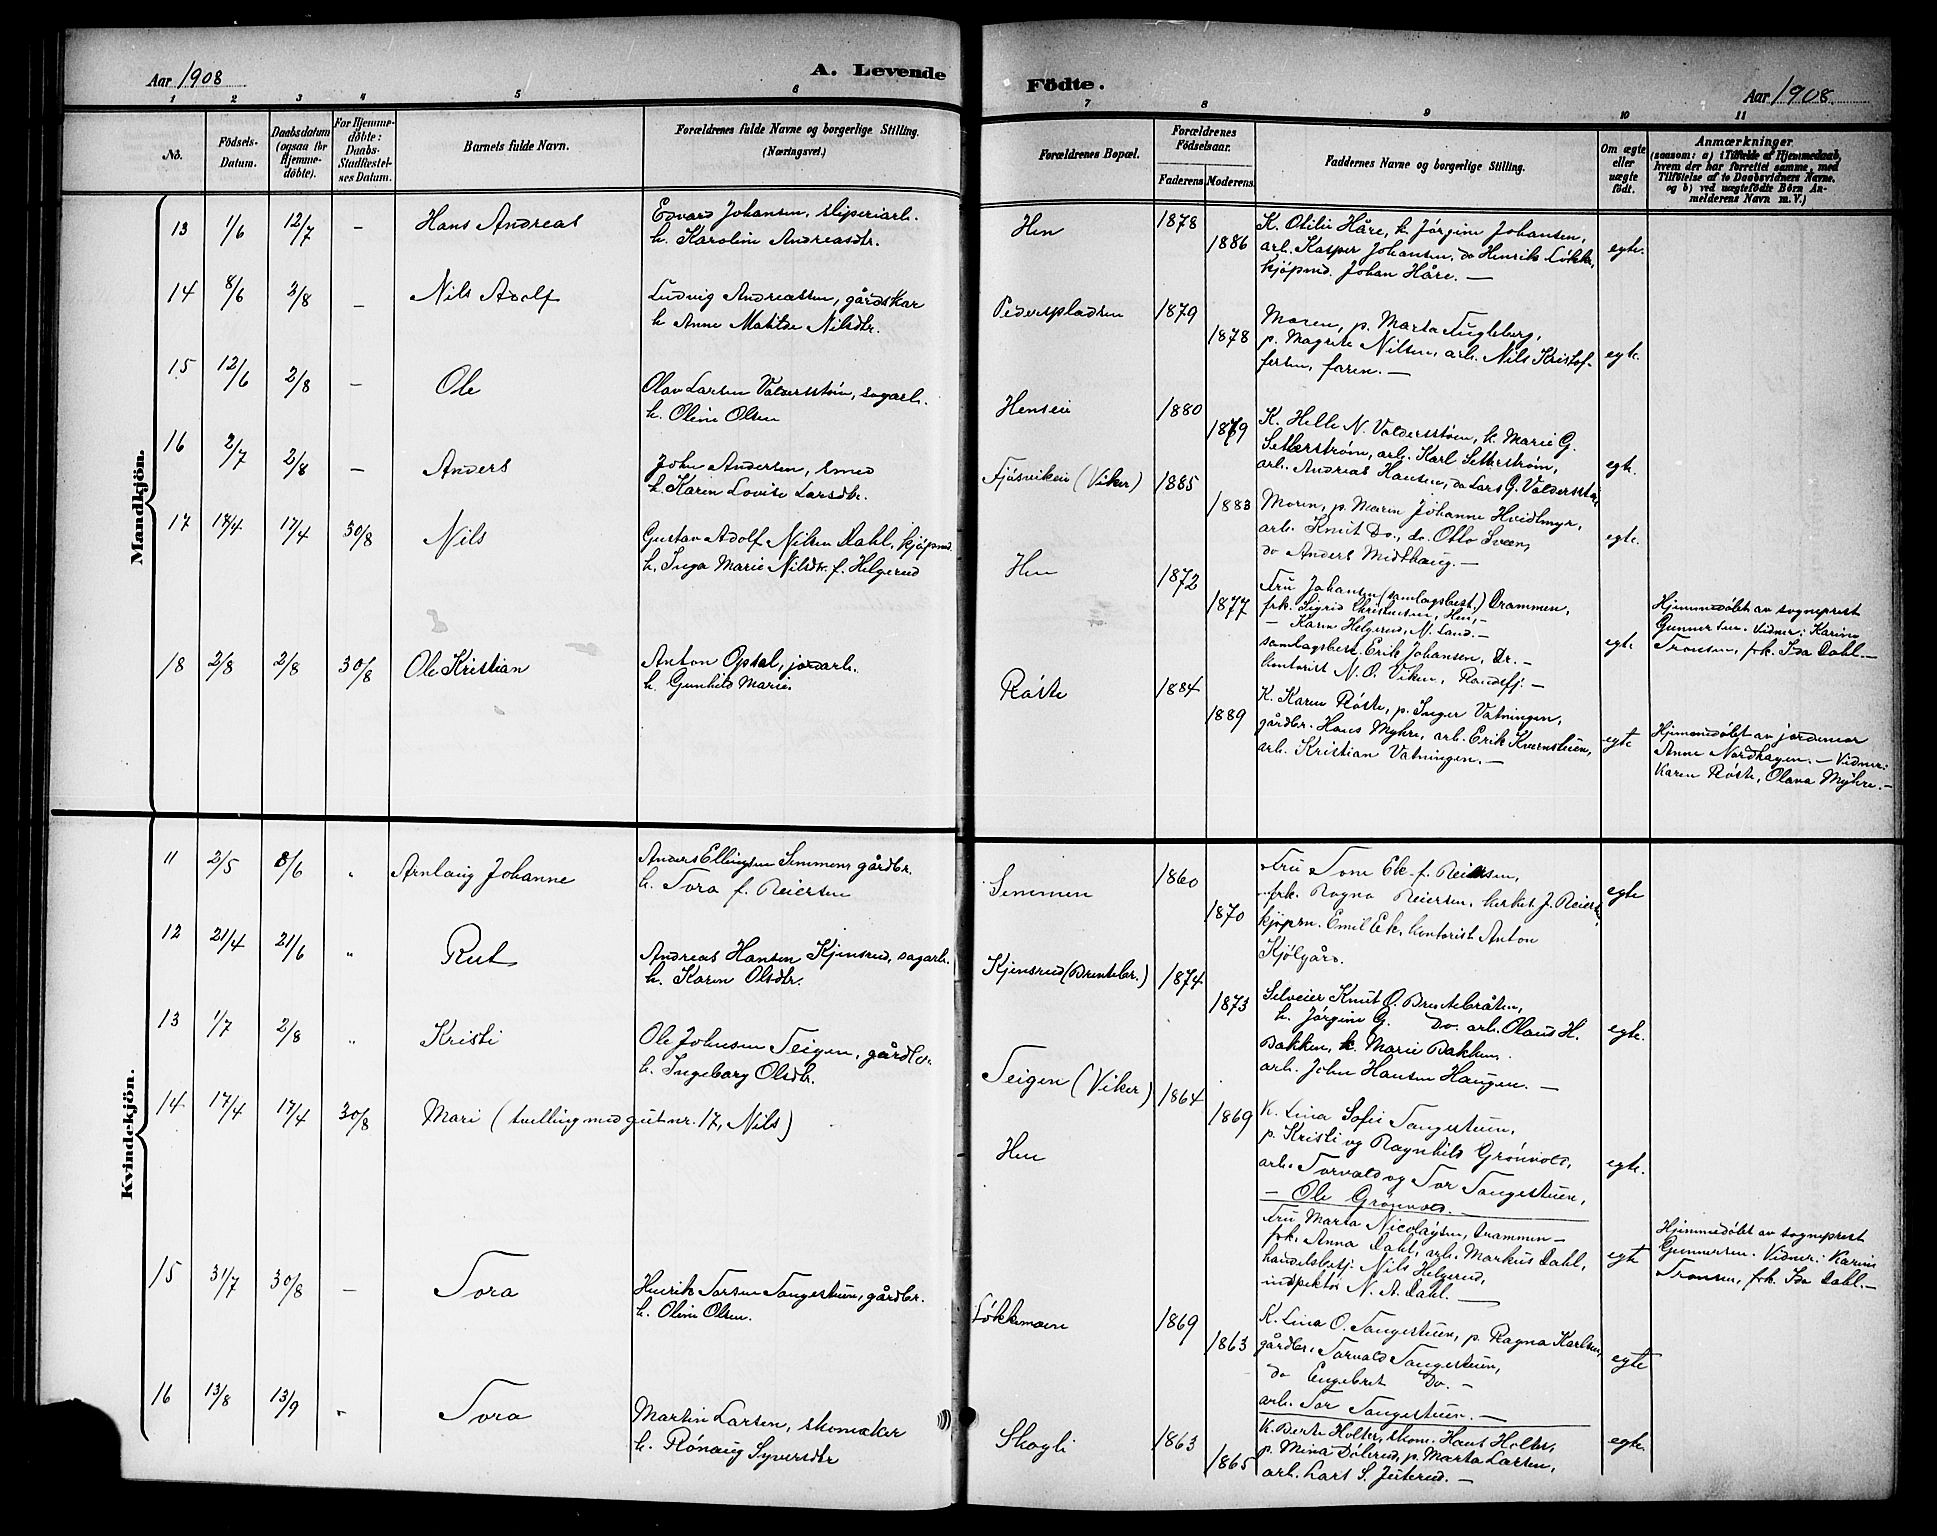 Aar 1908
A. Levende
1 2 3 4 5 6
No.
Födsels-
Datum.
Daabsdatum
(ogsaa for
Hjemme-
döbte).
For Hjemme-
döbte:
Daabs-
Stadfæstel-
ses Datum.
Barnets fulde Navn.
Forældrenes fulde Navne og borgerlige Stilling.
(Næringsvei.)
Mandkjön.
13 1/6 12/7 — Hans Andreas
Edvard Johansen, sliperiarb.
h. Karoline Andreasdtr.
14 8/6 2/8 — Nils Adolf
Ludvig Andreassen, gårdskar
h. Anne Matilde Nilsdtr.
15 12/6 2/8 — Ole
Olav Larsen Valdersstøen, sagarb.
h. Oline Olsen
16 2/7 2/8 — Anders
John Andersen, smed
h. Karen Lovise Larsdtr.
17 17/4 17/4 30/8 Nils
Gustav Adolf Nilsen Dahl, kjøpmd.
h. Inga Marie Nilsdtr. f. Helgerud
18 2/8 2/8 30/8 Ole Kristian
Anton Opsal, jordarb.
h. Gunhild Marie
Kvindekjön.
11 2/5 8/6 " Arnlaug Johanne
Anders Ellingsen Semmen, gårdbr.
h. Tora f. Reiersen
12 21/4 21/6 " Rut
Andreas Hansen Kjinsrud, sagarb.
h. Karen Olsdtr.
13 1/7 2/8 " Kristi
Ole Johnsen Teigen, gårdbr.
h. Ingeborg Olsdtr.
14 17/4 17/4 30/8 Mari (tvilling med gut nr. 17, Nils)
15 31/7 30/8 — Tora
Henrik Torsen Tangestuen, gårdbr.
h. Oline Olsen.
16 13/8 13/9 " Tora
Martin Larsen, skomaker
h. Rønaug Syversdtr
Födte.
Aar 1908
7 8 9 10 11
Forældrenes Bopæl.
Forældrenes
Födselsaar.
Faderens. Moderens.
Faddernes Navne og borgerlige Stilling.
Om ægte
eller
uægte
födt.
Anmærkninger
(saasom: a) i Tilfælde af Hjemmedaab,
hvem der har forrettet samme, med
Tilföielse af to Daabsvidners Navne.
og b) ved uægtefödte Börn An-
melderens Navn m. V.)
Hen 1878 1886
K. Otilie Håre, k. Jørgine Johansen,
arb. Kasper Johansen, do Henrik Løkke,
kjøpmd. Johan Håre. —
egte.
Pederspladsen 1879 1878
Moren, p. Marta Fugleberg,
p. Magrete Nilsen, arb. Nils Kristof-
fersen, faren. —
egte.
Henseie 1880 1879
K. Helle N. Valdersstøen, k. Marie G.
Setterstrøm, arb. Karl Setterstrøm,
arb. Andreas Hansen, do Lars G. Valdersstøen,
egte.
Fjøsvikeie (Viker) 1885 1883
Moren, p. Maren Johanne Hvidtmyr,
arb. Knut Do., do. Otto Sveen,
do Anders Midthaug. —
egte.
Hen 1872 1877
Fru Johansen (samlagsbest.) Drammen,
frk. Sigrid Christensen, Hen, —
— Karen Helgerud, N. Land. —
samlagsbest. Erik Johansen, Dr. —
kontorist N. O. Viken, Randsfj. —
egte
Hjemmedøbt av sogneprest
Gunnersen. Vidner: Karine
Tronsen, frk. Ida Dahl. —
Røste 1884 1889
K. Karen Røste, p. Inger Vatningen,
gårdbr. Hans Myhre, arb. Erik Kvernstuen,
arb. Kristian Vatningen. —
egte
Hjemmedøbt av jordemor
Anne Nordhagen. — Vidner:
Karen Røste, Olava Myhre. —
Semmen 1860 1870
Fru Tone Ek f. Reiersen,
frk. Ragna Reiersen, kirkes. J. Reiers.,
kjøpm. Emil Ek, kontorist Anton
Kjølgård.
egte
Kjinsrud (Brentebr.) 1874 1873
Selveier Knut O. Brentebråten,
k. Jørgine G. Do. arb. Olaus H.
Bakken, k. Marie Bakken,
arb. John Hansen Haugen. —
egte.
Teigen (Viker) 1864 1869
K. Lina Sofie Tangestuen,
p. Kristi og Ragnhild Grønvold,
arb. Torvald og Tor Tangestuen,
— Ole Grønvold. —
egte.
Hen
Fru Marta Nicolaysen, Drammen —
frk. Anna Dahl, arb. Markus Dahl,
handelsbetj. Nils Helgerud,
inspektør N. A. Dahl. —
egte
Hjemmedøbt av sogneprest
Gunnersen. Vidner: Karine
Tronsen, frk. Ida Dahl. —
Løkkemoen 1869 1863
K. Lina O. Tangestuen, p. Ragna Karlsen,
gårdbr. Torvald Tangestuen,
do Engebret Do. —
arb. Tor Tangestuen. —
egte
Skogli 1863 1865
K. Berte Holter, skom. Hans Holter,
p. Mina Dølerud, p. Marta Larsen,
arb. Lars S. Juterud. —
egte.